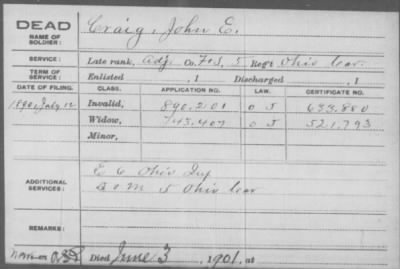 DEAD
NAME OF SOLDIER:
Craig, John E.
SERVICE:
Late rank, Adj. Co. F+S, 5 Reg't Ohio Cav.
TERM OF SERVICE:
Enlisted , 1 Discharged , 1
DATE OF FILING. CLASS. APPLICATION NO. LAW. CERTIFICATE NO.
1890, July 12 Invalid, 890.201 0 5 633.880
Widow, 743.407 0 5 521.793
Minor,
ADDITIONAL SERVICES:
E 6 Ohio Inf
2 0 M 5 Ohio Cav
REMARKS:
Died June 3, 1901, at